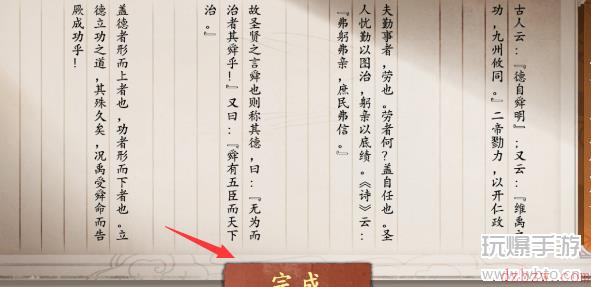 古人云：『德自舜明』；又云：『维禹之
功，九州攸同。』二帝勠力，以开仁政
夫勤事者，劳也。劳者何？盖自任也。圣
人忧勤以图治，躬亲以底绩。《诗》云：
『弗躬弗亲，庶民弗信。』
故圣贤之言舜也则称其德，曰：『无为而
治者其舜乎！』又曰：『舜有五臣而天下
治。』
盖德者形而上者也，功者形而下者也。立
德立功之道，其殊久矣，况禹受舜命而告
厥成功乎！
完成
玩爆手游